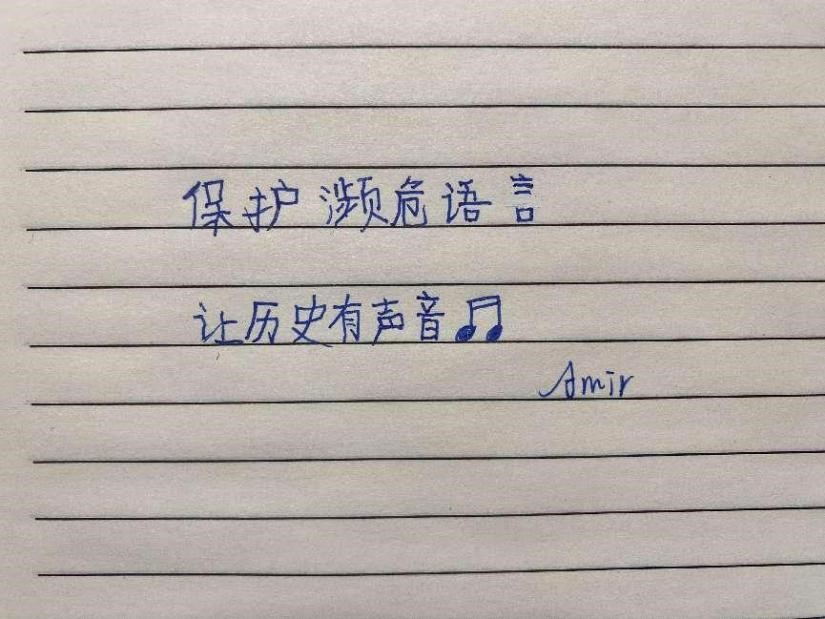 保护濒危语言
让历史有声音♫
Amir